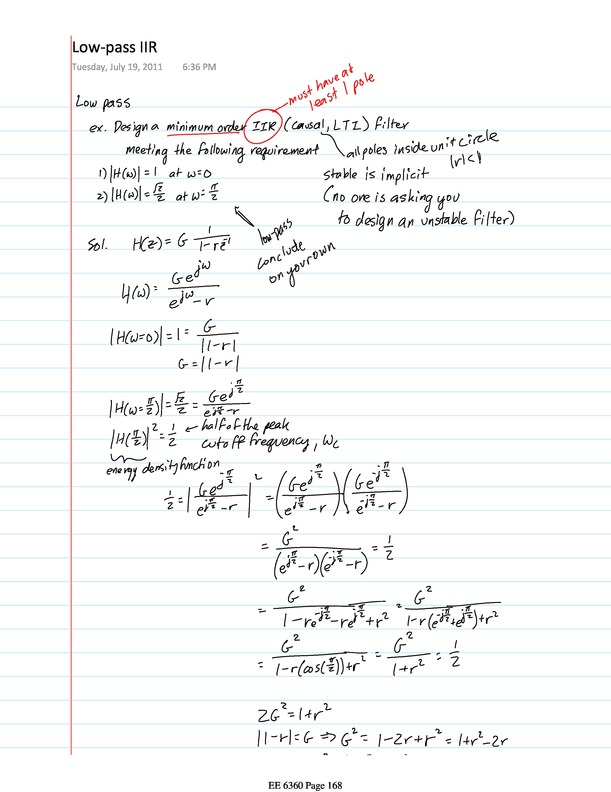 Low-pass IIR
Tuesday, July 19, 2011 6:36 PM
must have at
least 1 pole
Low pass
ex. Design a minimum order IIR (causal, LTI) filter
meeting the following requirement
all poles inside unit circle
|r|<1
1) |H(ω)|=1 at ω=0
2) |H(ω)|=√2/2 at ω=π/2
stable is implicit
(no one is asking you
to design an unstable filter)
low-pass
conclude
on your own
Sol. H(z)=G 1/(1-rz^-1)
H(ω)= Ge^jω/(e^jω-r)
|H(ω=0)|=1= G/|1-r|
G=|1-r|
|H(ω=π/2)|=√2/2= Ge^(jπ/2)/(e^(jπ/2)-r)
|H(π/2)|²=1/2 ← half of the peak
cutoff frequency, ωc
energy density function
1/2=|Ge^(jπ/2)/(e^(jπ/2)-r)|²=(Ge^(jπ/2)/(e^(jπ/2)-r))(Ge^(-jπ/2)/(e^(-jπ/2)-r))
= G²/((e^(jπ/2)-r)(e^(-jπ/2)-r))=1/2
= G²/(1-re^(-jπ/2)-re^(jπ/2)+r²)= G²/(1-r(e^(-jπ/2)+e^(jπ/2))+r²)
= G²/(1-r(cos(π/2))+r²)= G²/(1+r²)=1/2
2G²=1+r²
|1-r|=G ⇒ G²= 1-2r+r²=1+r²-2r
EE 6360 Page 168